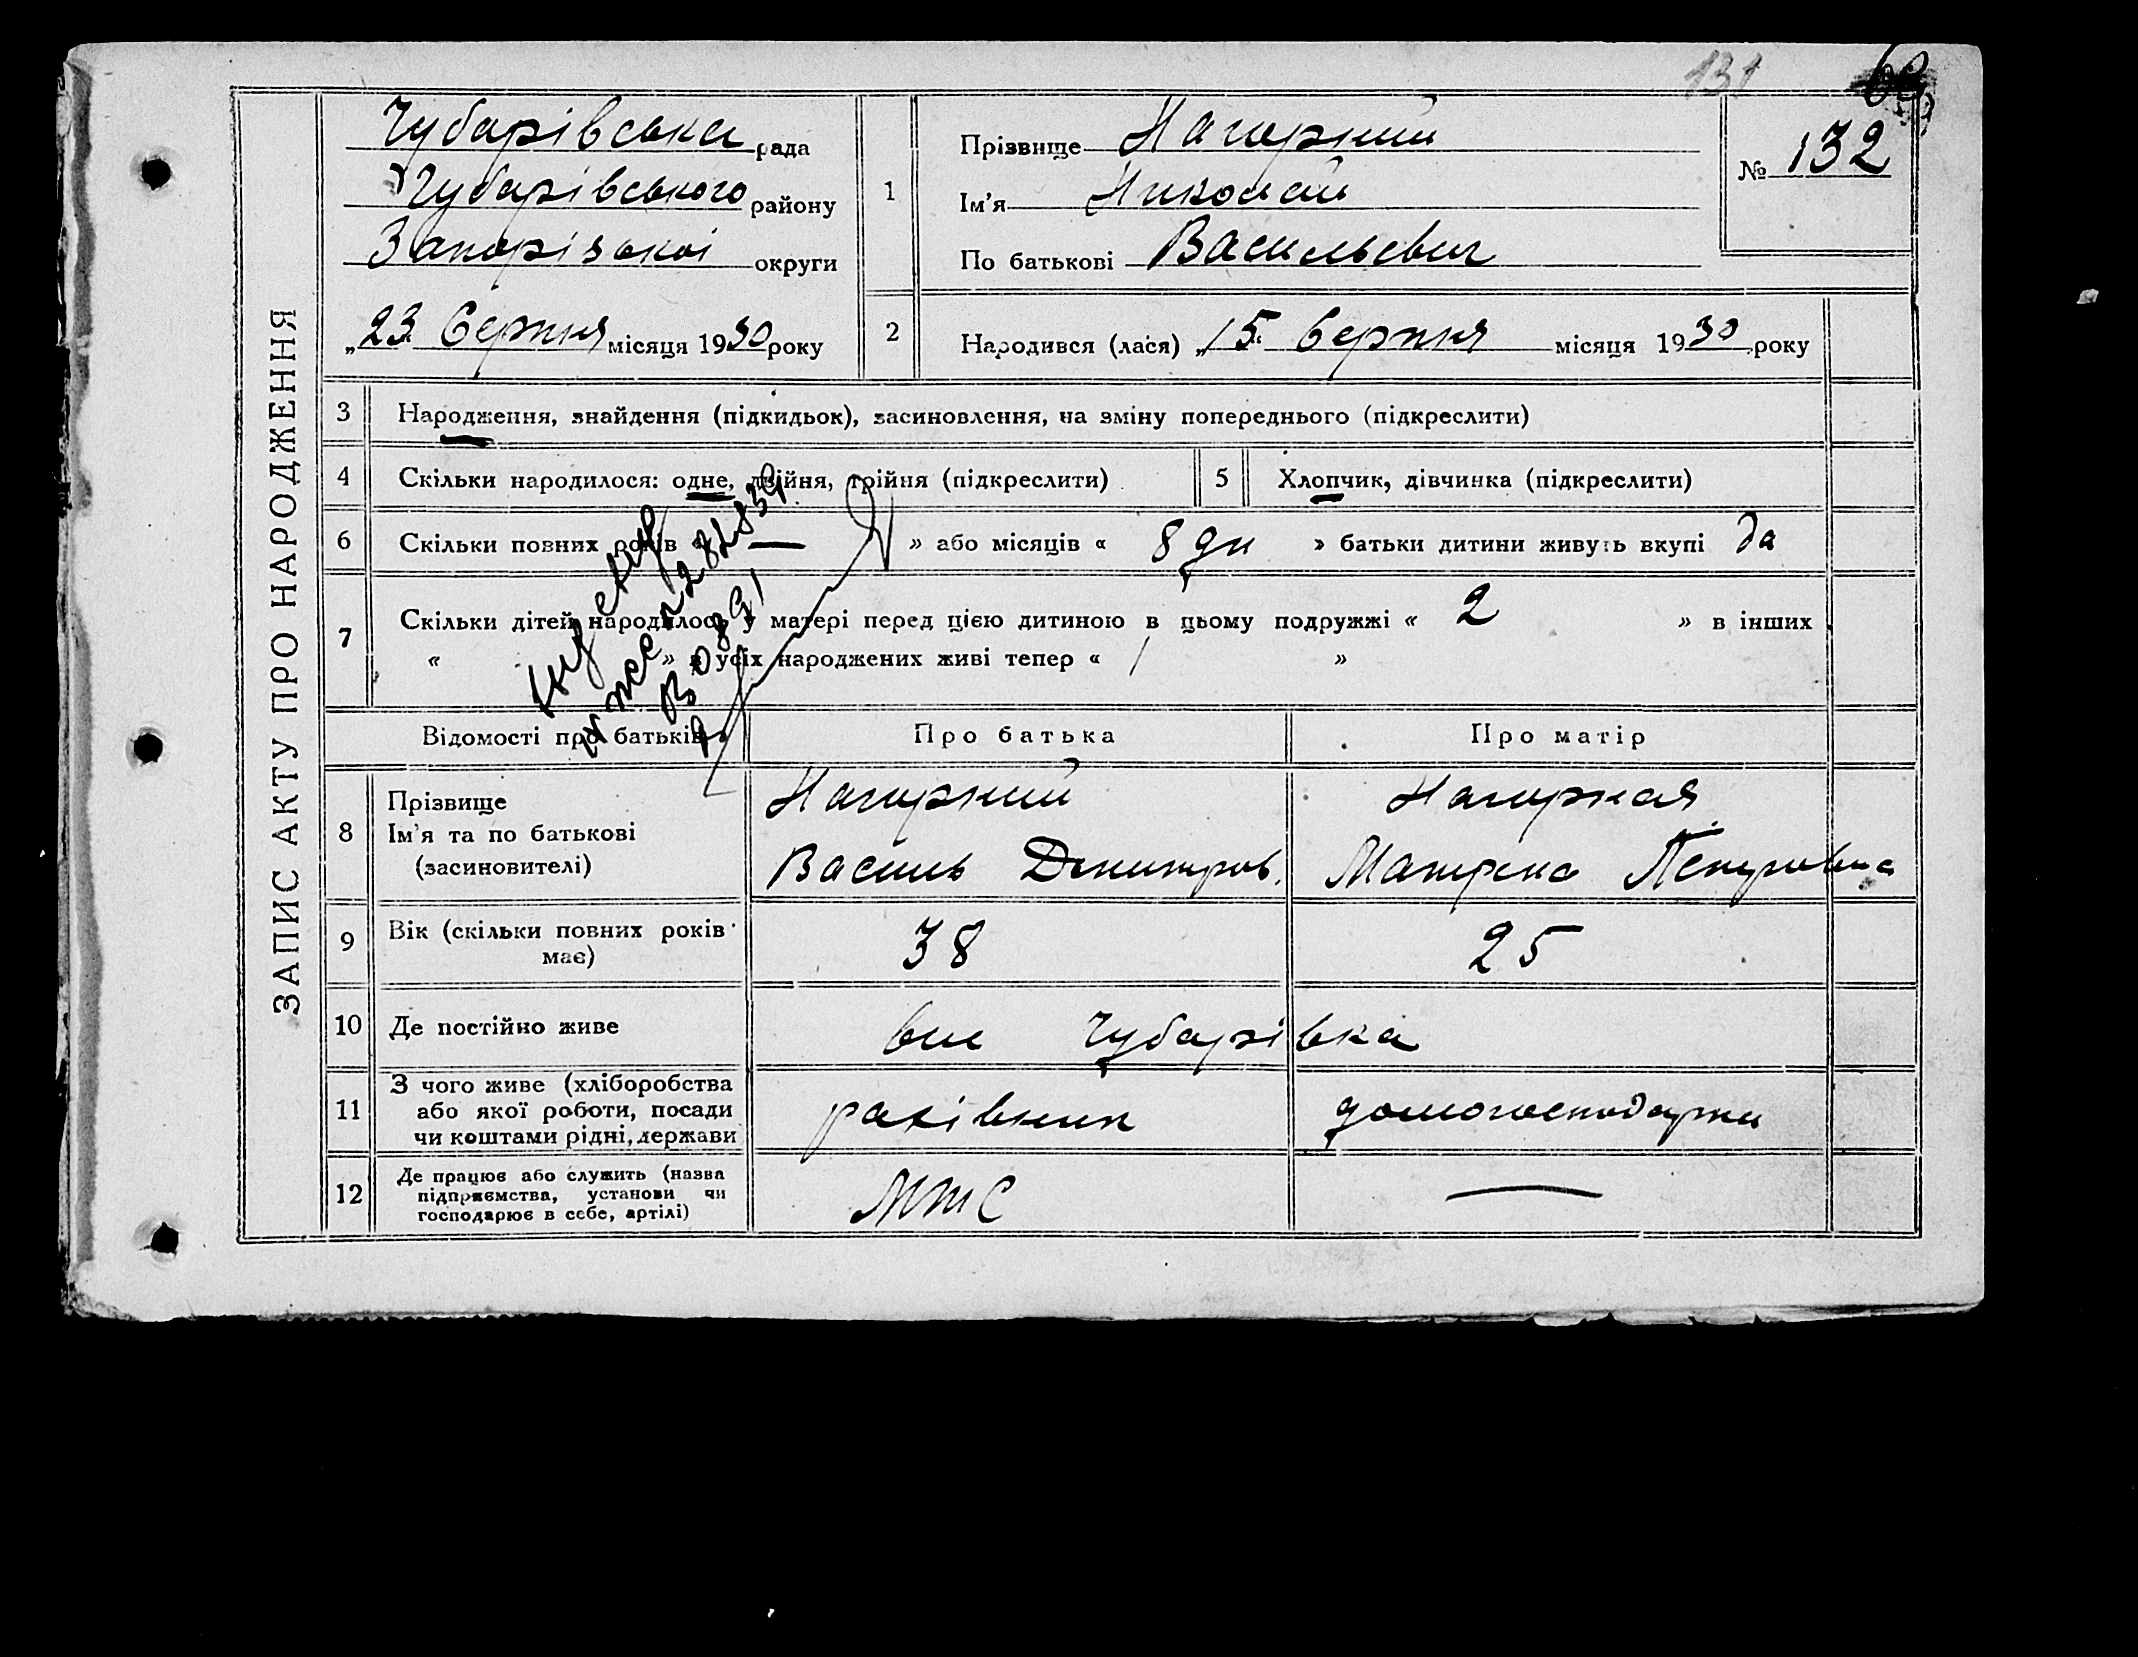 131
ЗАПИС АКТУ ПРО НАРОДЖЕННЯ
Чубарівська рада
Чубарівського району
Запорізької округи
„23" Серпня місяця 1930 року
1
Прізвище Нагорний
Ім’я Николай
По батькові Васильевич
№ 132
2
Народився (лася) „15" Серпня місяця 1930 року
3 Народження, знайдення (підкидьок), засиновлення, на зміну попереднього (підкреслити)
4 Скільки народилося: одне, двійня, трійня (підкреслити)
5 Хлопчик, дівчинка (підкреслити)
6 Скільки повних років « — » або місяців « 8 дн » батьки дитини живуть вкупі да
7 Скільки дітей народилось у матері перед цією дитиною в цьому подружжі « 2 » в інших
« » в усіх народжених живі тепер « 1 »
Відомості про батьків Про батька Про матір
8 Прізвище
Ім’я та по батькові
(засиновителі)
Нагорний
Василь Дмитров.
Нагорная
Матрена Петровна
9 Вік (скільки повних років
має)
38 25
10 Де постійно живе
Чубарівка
11 З чого живе (хліборобства
або якої роботи, посади
чи коштами рідні, держави
рахівник домогосподарка
12 Де працює або служить (назва
підприємства, установи чи
господарює в себе, артілі)
МТС —